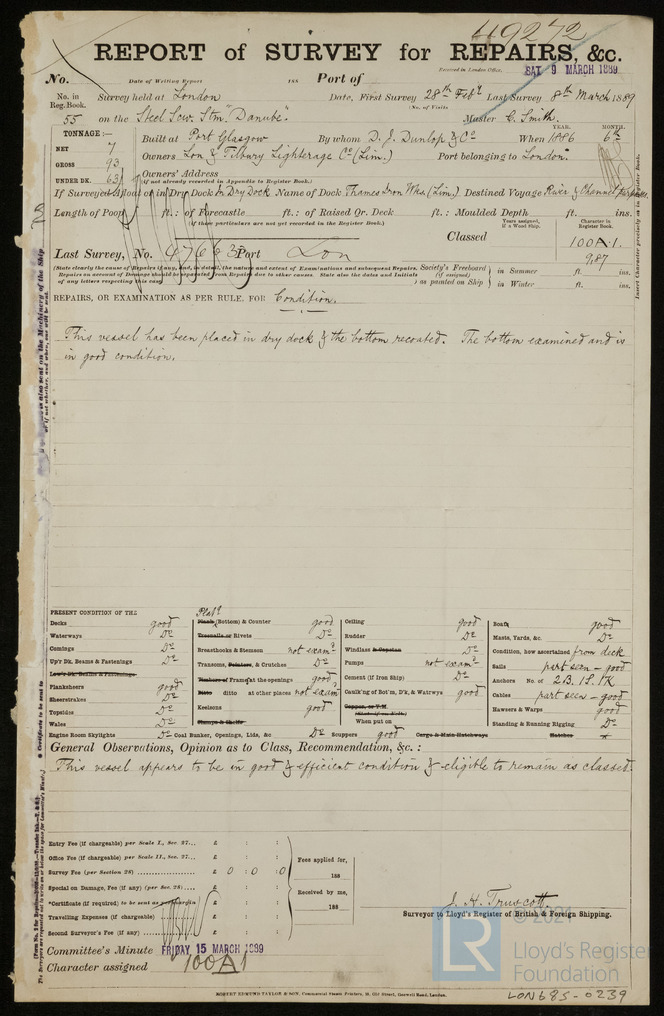 49272
REPORT of SURVEY for REPAIRS, &c.
No. Date of Writing Report 188 Port of Received in London Office, SAT 9 MARCH 1889
No. in Reg. Book. Survey held at London Date, First Survey 28th Feby Last Survey 8th March 1889
(No. of Visits
55 on the Steel Scw. Stm "Danube". Master C. Smith.
TONNAGE:— Built at Port Glasgow By whom D. J. Dunlop & Co When 1886 YEAR. MONTH. 6th
NET 7
GROSS 93
UNDER DK. 63
Owners Lon & Tilbury Lighterage Co (Lim.) Port belonging to London.
Owners' Address
(if not already recorded in Appendix to Register Book.)
If Surveyed Afloat or in Dry Dock In Dry Dock Name of Dock Thames Iron Wks. (Lim.) Destined Voyage River & Channel purposes.
Length of Poop ft.: of Forecastle ft.: of Raised Qr. Deck ft.: Moulded Depth ft. ins.
(if these particulars are not yet recorded in the Register Book.)
Years assigned, if a Wood Ship. Character in Register Book.
Classed 100A.1.
9,87
Last Survey, No. 47663 Port Lon
(State clearly the cause of Repairs if any, and, in detail, the nature and extent of Examinations and subsequent Repairs.
Repairs on account of Damage should be separated from Repairs due to other causes. State also the dates and Initials
of any letters respecting this case)
Society's Freeboard (if assigned) as painted on Ship in Summer ft. ins.
in Winter ft. ins.
REPAIRS, OR EXAMINATION AS PER RULE, FOR Condition.
This vessel has been placed in dry dock & the bottom recoated. The bottom examined and is
in good condition.
PRESENT CONDITION OF THE
Decks good
Waterways Do
Comings Do
Up'r Dk. Beams & Fastenings Do
Low'r Dk. Beams & Fastenings
Planksheers good
Sheerstrakes Do
Topsides Do
Wales Do
Engine Room Skylights Do
Platg
Plank (Bottom) & Counter good
Treenails or Rivets Do
Breasthooks & Stemson not examd
Transoms, Pointers, & Crutches Do
Timbers of Frame at the openings good
Ditto ditto at other places not examd
Keelsons good
Stamps & Shelfs
Coal Bunker, Openings, Lids, &c. Do
Ceiling good
Rudder Do
Windlass & Capstan Do
Pumps not examd
Cement (if Iron Ship) Do
Caulk'ng of Bot'm, D'k, & Watrwys good
Copper, or Y.M.
When put on
Scuppers good
Cargo & Main Hatchways
Boats good
Masts, Yards, &c. Do
Condition, how ascertained from deck
Sails part seen - good
Anchors No. of 2B. 1S. 1K
Cables part seen - good
Hawsers & Warps good
Standing & Running Rigging Do
Hatches
General Observations, Opinion as to Class, Recommendation, &c.:
This vessel appears to be in good & efficient condition & eligible to remain as classed.
Entry Fee (if chargeable) per Scale I., Sec. 27... £ : :
Office Fee (if chargeable) per Scale II., Sec. 27... £ : :
Survey Fee (per Section 28) £ 0 : 0 : 0
Special on Damage, Fee (if any) (per Sec. 28).... £ : :
*Certificate (if required) to be sent as per margin £ : :
Travelling Expenses (if chargeable) £ : :
Second Surveyor's Fee (if any) £ : :
Fees applied for,
188
Received by me,
188
J. H. Truscott.
Surveyor to Lloyd's Register of British & Foreign Shipping.
Committee's Minute FRIDAY 15 MARCH 1889
Character assigned 100A1
© 2021
LR
Lloyd's Register
Foundation
ROBERT EDMUND TAYLOR & SON, Commercial Steam Printers, 19, Old Street, Goswell Road, London.
LON685-0239
Insert Character precisely as in Register Book.